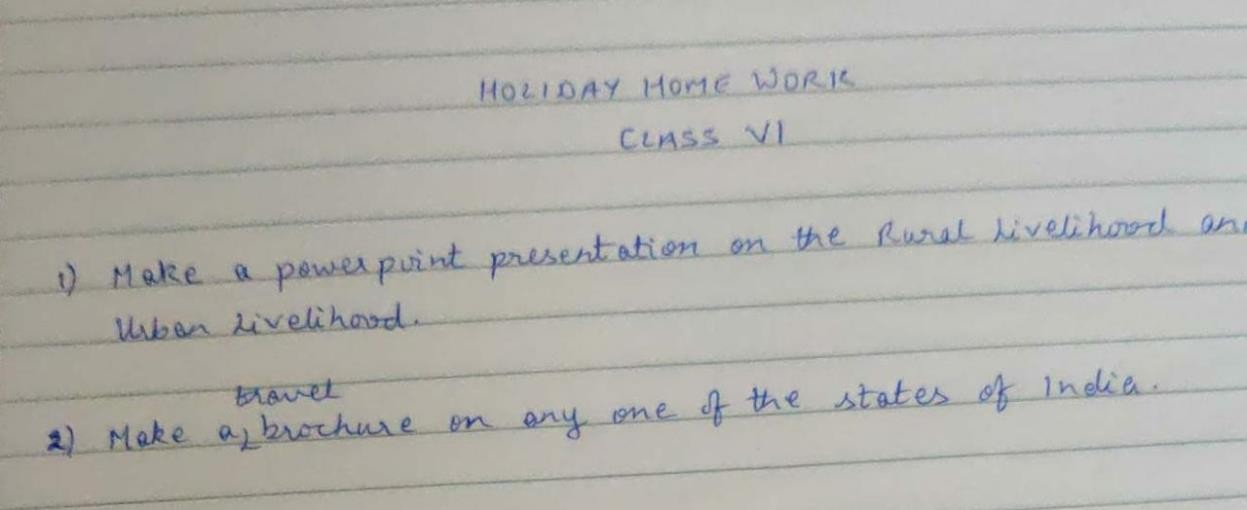 HOLIDAY HOME WORK
CLASS VI
1) Make a powerpoint presentation on the Rural Livelihood an
Urban Livelihood.
travel
2) Make a brochure on any one of the states of India.